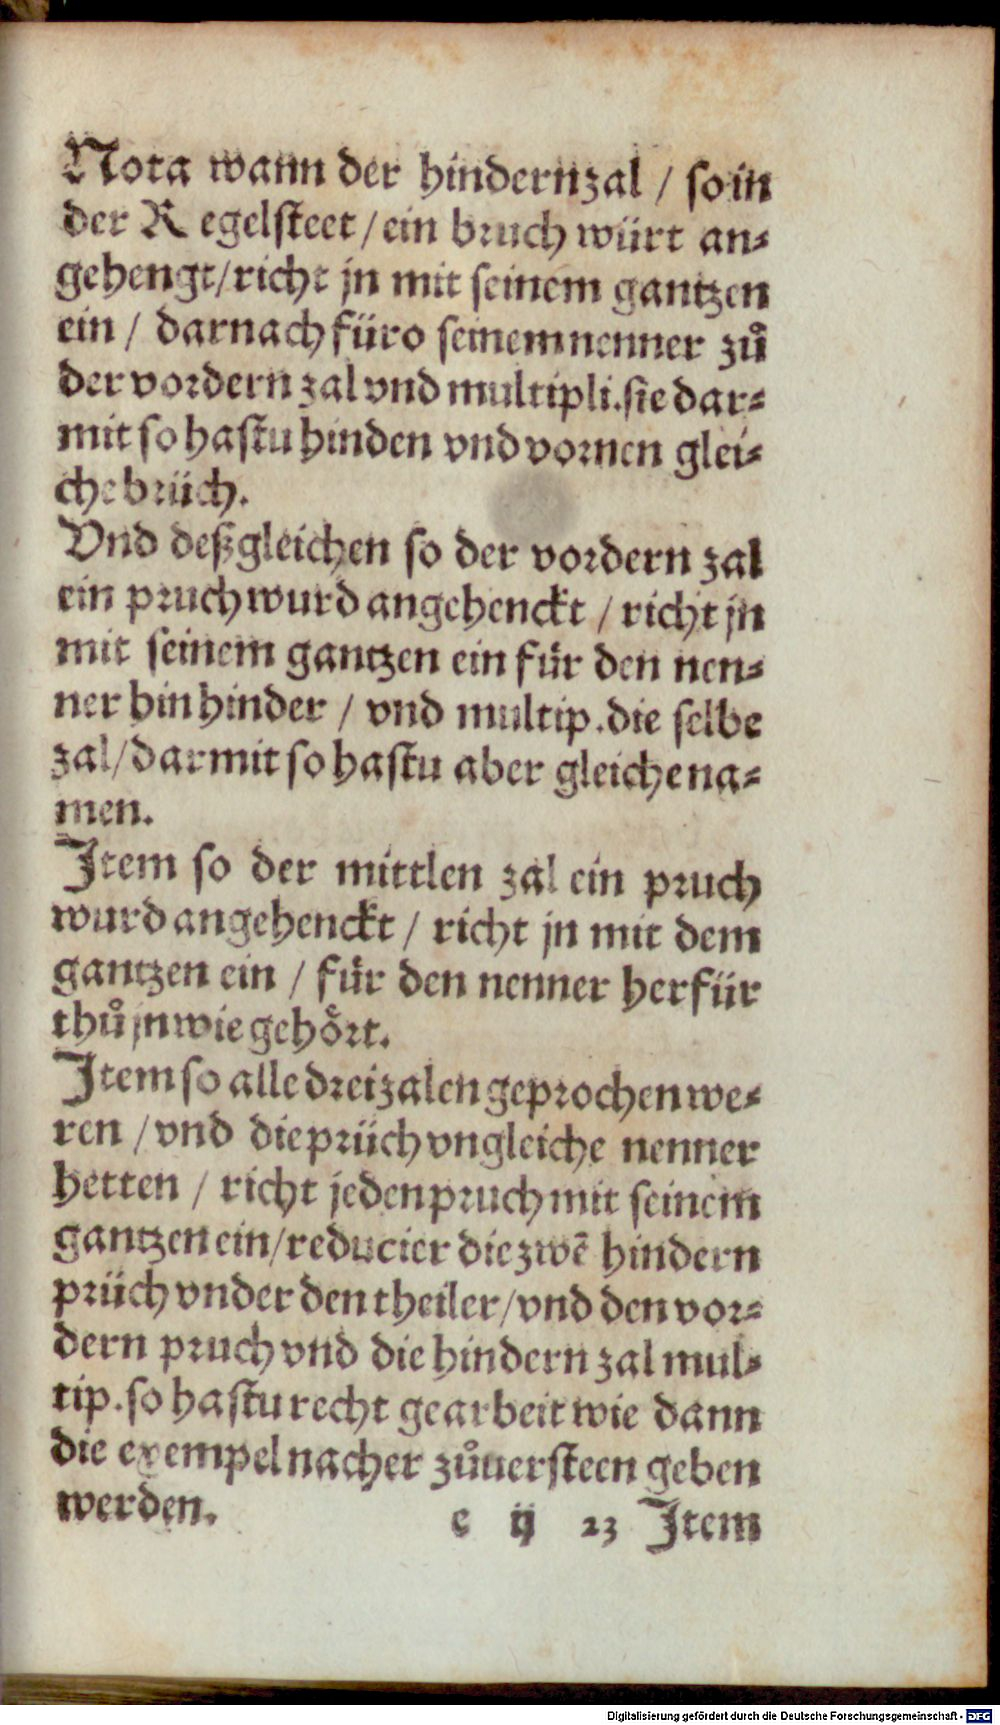 Nota wann der hindernzal / so in
der Regelsteet / ein bruch würt an⸗
gehengt/richt jn mit seinem gantzen
ein / darnach füro seinem nenner zů
der vordern zal vnd multipli.sie dar⸗
mit so hastu hinden vnd vornen glei⸗
che brüch.
Vnd deßgleichen so der vordern zal
ein pruch wurd angehenckt / richt jn
mit seinem gantzen ein für den nen⸗
ner hin hinder / vnd multip.die selbe
zal/darmit so hastu aber gleiche na⸗
men.
Item so der mittlen zal ein pruch
wurd angehenckt / richt jn mit dem
gantzen ein / für den nenner herfür
thů jn wie gehört.
Item so alle drei zalen geprochen we⸗
ren / vnd die prüch vngleiche nenner
hetten / richt jeden pruch mit seinem
gantzen ein/reducier die zwē hindern
prüch vnder den theiler/vnd den vor⸗
dern pruch vnd die hindern zal mul⸗
tip.so hastu recht gearbeit wie dann
die exempel nacher zůuersteen geben
werden. c ij 23 Item
Digitalisierung gefördert durch die Deutsche Forschungsgemeinschaft - DFG